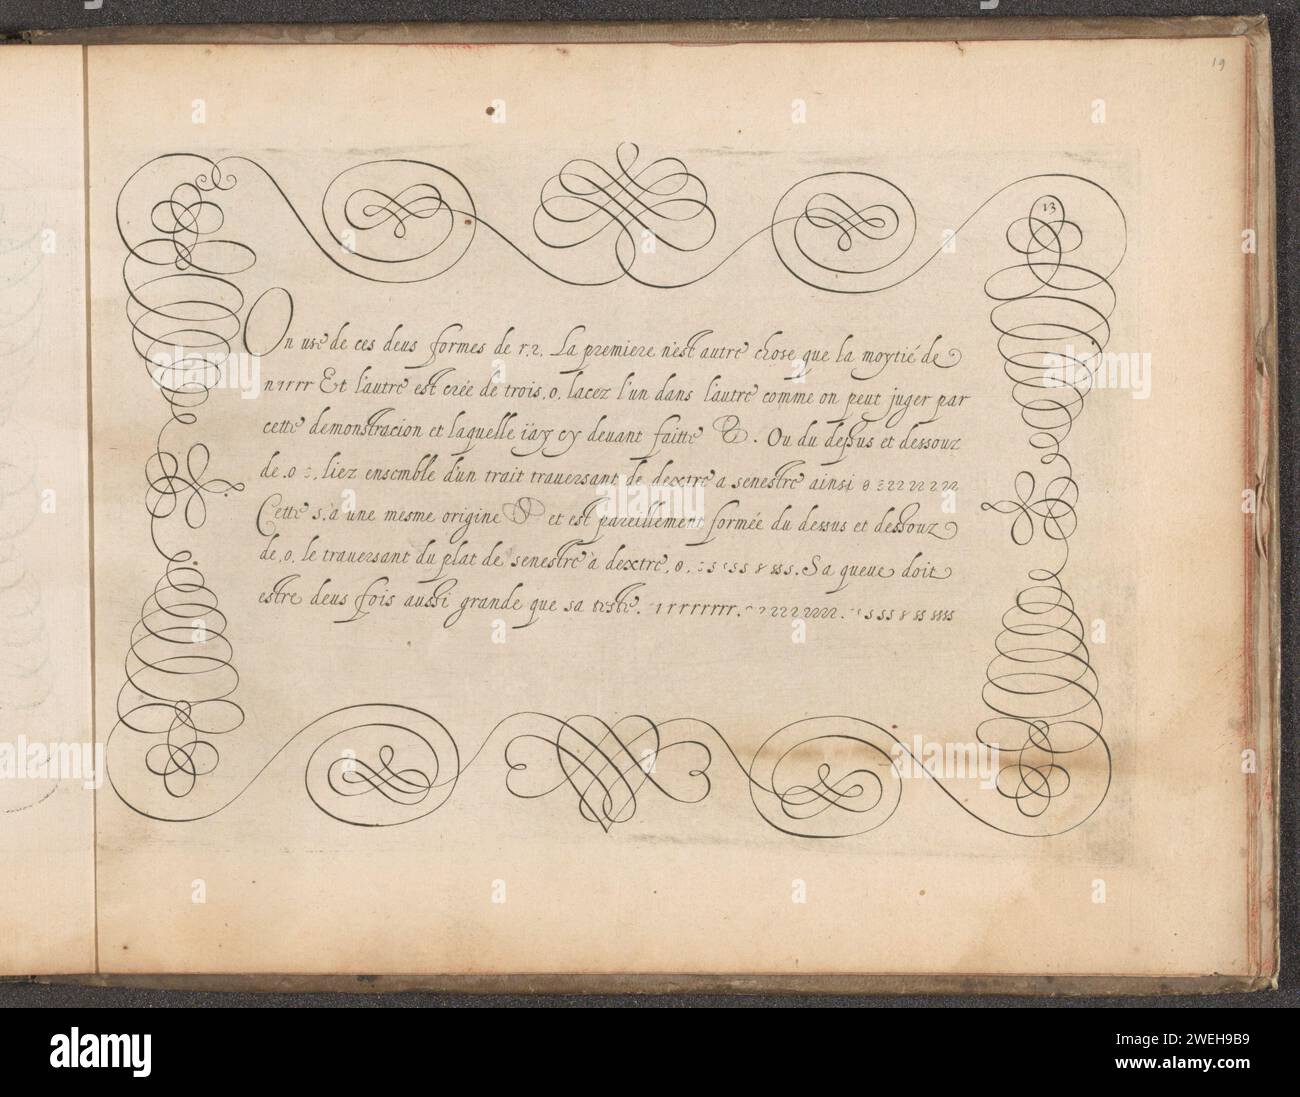 19
13
On use de ces deus formes de r.2. La premiere n'est autre chose que la moytié de
n ı r r r Et l'autre est crée de trois .o. lacez l'un dans l'autre comme on peut juger par
cette demonstracion et laquelle i'ay cy devant faitte . Ou du dessus et dessouz
de .o liez ensemble d'un trait traversant de dextre a senestre ainsi
Cette s. a une mesme origine et est pareillement formée du dessus et dessouz
de .o. le traversant du plat de senestre à dextre, Sa queue doit
estre deus fois aussi grande que sa teste.
alamy
Image ID: 2WEH9B9
www.alamy.com